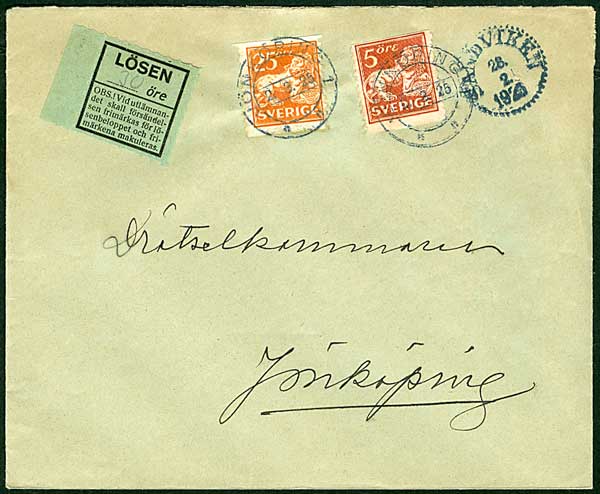 LÖSEN
30 öre
OBS.! Vid utlämnan-
det skall försändel-
sen frimärkas för lö-
senbeloppet och fri-
märkena makuleras.
25
SVERIGE
5 öre
SVERIGE
SANDVIKEN
28.
2.
Drätselkammaren
Jönköping